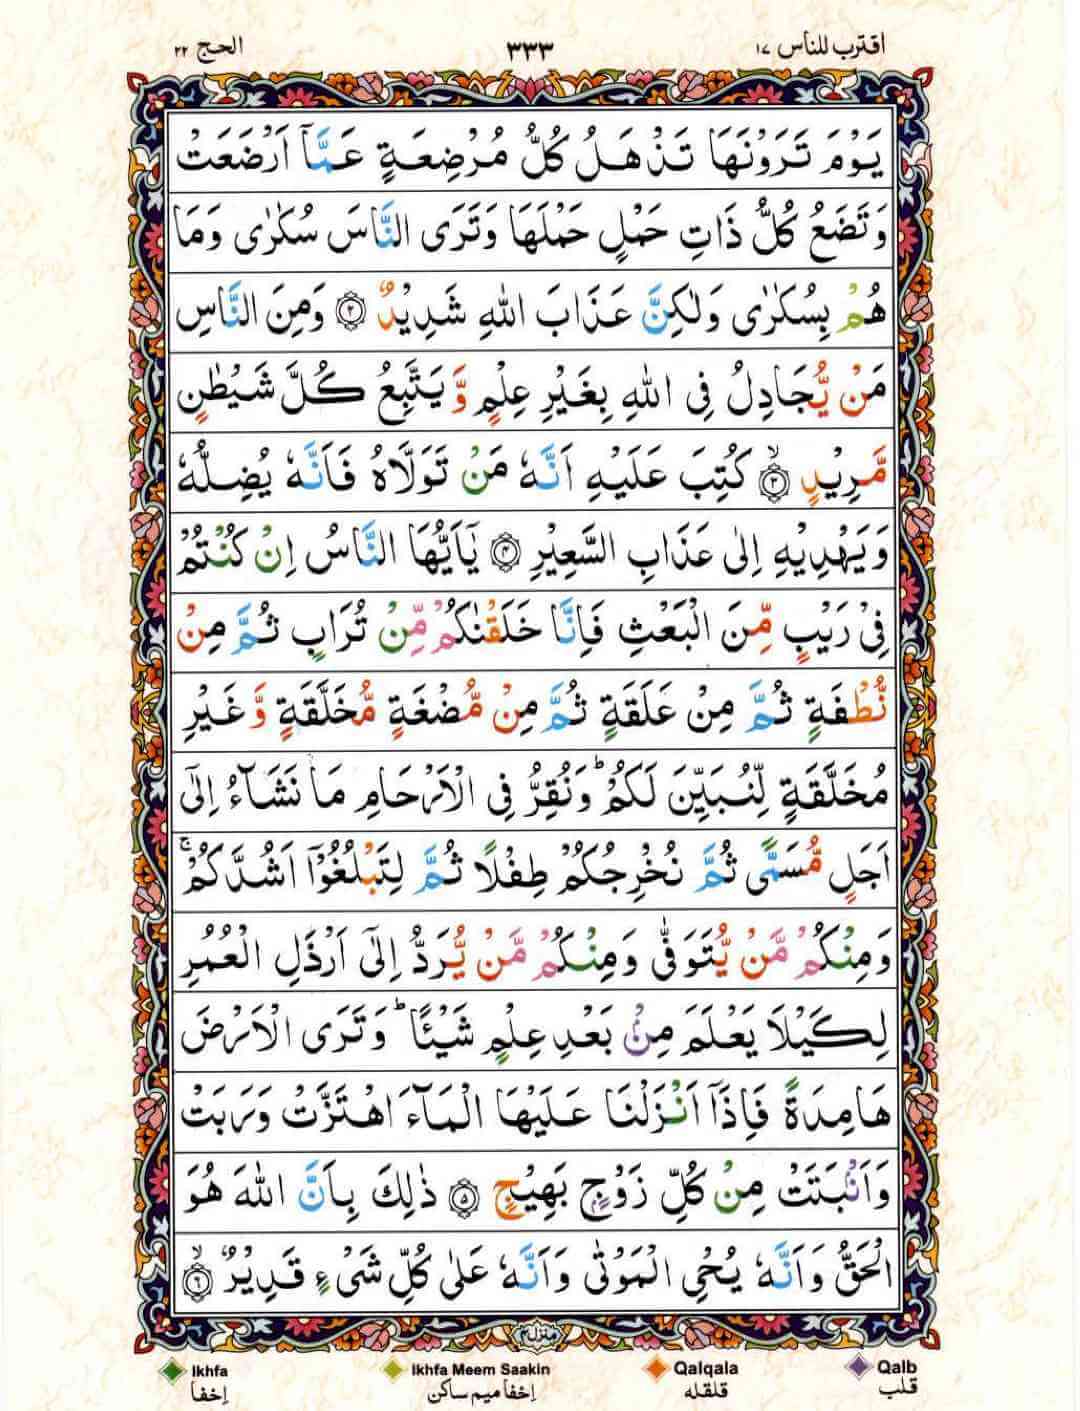 اقترب للناس ١٧
٣٣٣
الحج ٢٢
يَوْمَ تَرَوْنَهَا تَذْهَلُ كُلُّ مُرْضِعَةٍ عَمَّآ اَرْضَعَتْ
وَتَضَعُ كُلُّ ذَاتِ حَمْلٍ حَمْلَهَا وَتَرَى النَّاسَ سُكٰرٰى وَمَا
هُمْ بِسُكٰرٰى وَلٰكِنَّ عَذَابَ اللّٰهِ شَدِيْدٌ ۝٢ وَمِنَ النَّاسِ
مَنْ يُّجَادِلُ فِى اللّٰهِ بِغَيْرِ عِلْمٍ وَّيَتَّبِعُ كُلَّ شَيْطٰنٍ
مَّرِيْدٍ ۝٣ۙ كُتِبَ عَلَيْهِ اَنَّهٗ مَنْ تَوَلَّاهُ فَاَنَّهٗ يُضِلُّهٗ
وَيَهْدِيْهِ اِلٰى عَذَابِ السَّعِيْرِ ۝٤ يٰٓاَيُّهَا النَّاسُ اِنْ كُنْتُمْ
فِىْ رَيْبٍ مِّنَ الْبَعْثِ فَاِنَّا خَلَقْنٰكُمْ مِّنْ تُرَابٍ ثُمَّ مِنْ
نُّطْفَةٍ ثُمَّ مِنْ عَلَقَةٍ ثُمَّ مِنْ مُّضْغَةٍ مُّخَلَّقَةٍ وَّغَيْرِ
مُخَلَّقَةٍ لِّنُبَيِّنَ لَكُمْ ؕ وَنُقِرُّ فِى الْاَرْحَامِ مَا نَشَآءُ اِلٰٓى
اَجَلٍ مُّسَمًّى ثُمَّ نُخْرِجُكُمْ طِفْلًا ثُمَّ لِتَبْلُغُوْٓا اَشُدَّكُمْ ۚ
وَمِنْكُمْ مَّنْ يُّتَوَفّٰى وَمِنْكُمْ مَّنْ يُّرَدُّ اِلٰٓى اَرْذَلِ الْعُمُرِ
لِكَيْلَا يَعْلَمَ مِنْۢ بَعْدِ عِلْمٍ شَيْـًٔا ؕ وَتَرَى الْاَرْضَ
هَامِدَةً فَاِذَآ اَنْزَلْنَا عَلَيْهَا الْمَآءَ اهْتَزَّتْ وَرَبَتْ
وَاَنْۢبَتَتْ مِنْ كُلِّ زَوْجٍۢ بَهِيْجٍ ۝٥ ذٰلِكَ بِاَنَّ اللّٰهَ هُوَ
الْحَقُّ وَاَنَّهٗ يُحْىِ الْمَوْتٰى وَاَنَّهٗ عَلٰى كُلِّ شَىْءٍ قَدِيْرٌ ۝٦ۙ
منزل ٤
Ikhfa
Ikhfa Meem Saakin
Qalqala
Qalb
إخفا
إخفا ميم ساكن
قلقله
قلب